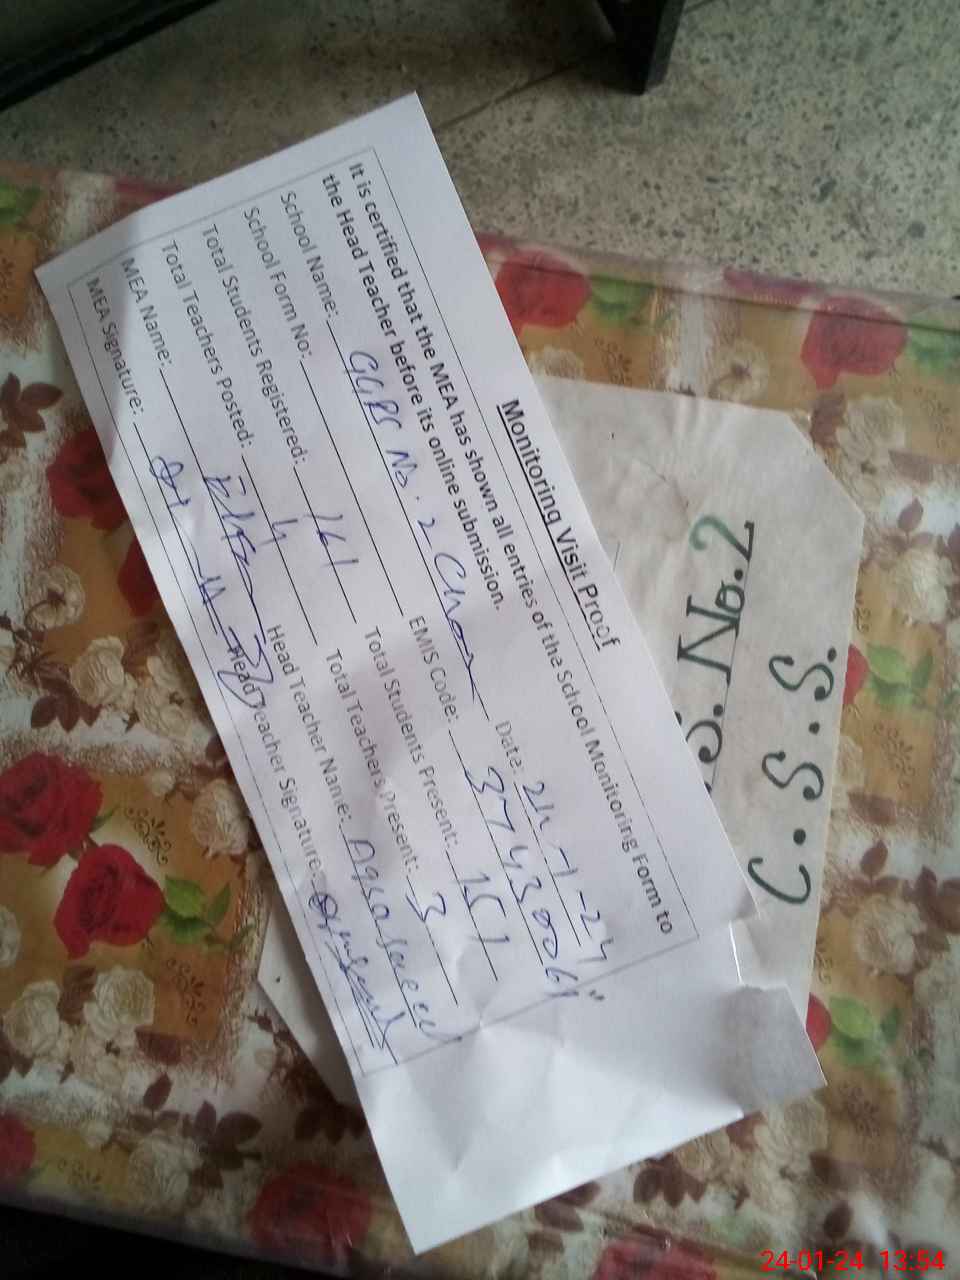 Monitoring Visit Proof
It is certified that the MEA has shown all entries of the School Monitoring Form to
the Head Teacher before its online submission.
School Name: GGPS No. 2 Date: 24-1-24
School Form No: EMIS Code: 37430061
Total Students Registered: 161 Total Students Present: 151
Total Teachers Posted: 4 Total Teachers Present: 3
MEA Name: Head Teacher Name:
MEA Signature: Head Teacher Signature:
S. No. 2
C.S.S.
24-01-24 13:54